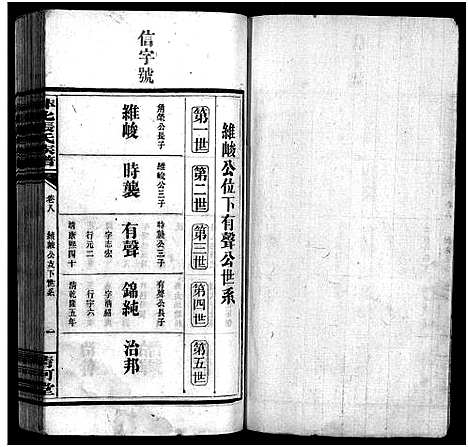 信字號
維峻公位下有聲公世系
第一世
第二世
第三世
第四世
第五世
角榮公長子
維峻
維峻公三子
時襲
時襲公三子
有聲
字志宏
行元二
清康熙四十
有聲公長子
錦純
行字六
清乾隆五年
治邦
張氏宗譜
卷八
維峻公支下世系
一
清河堂